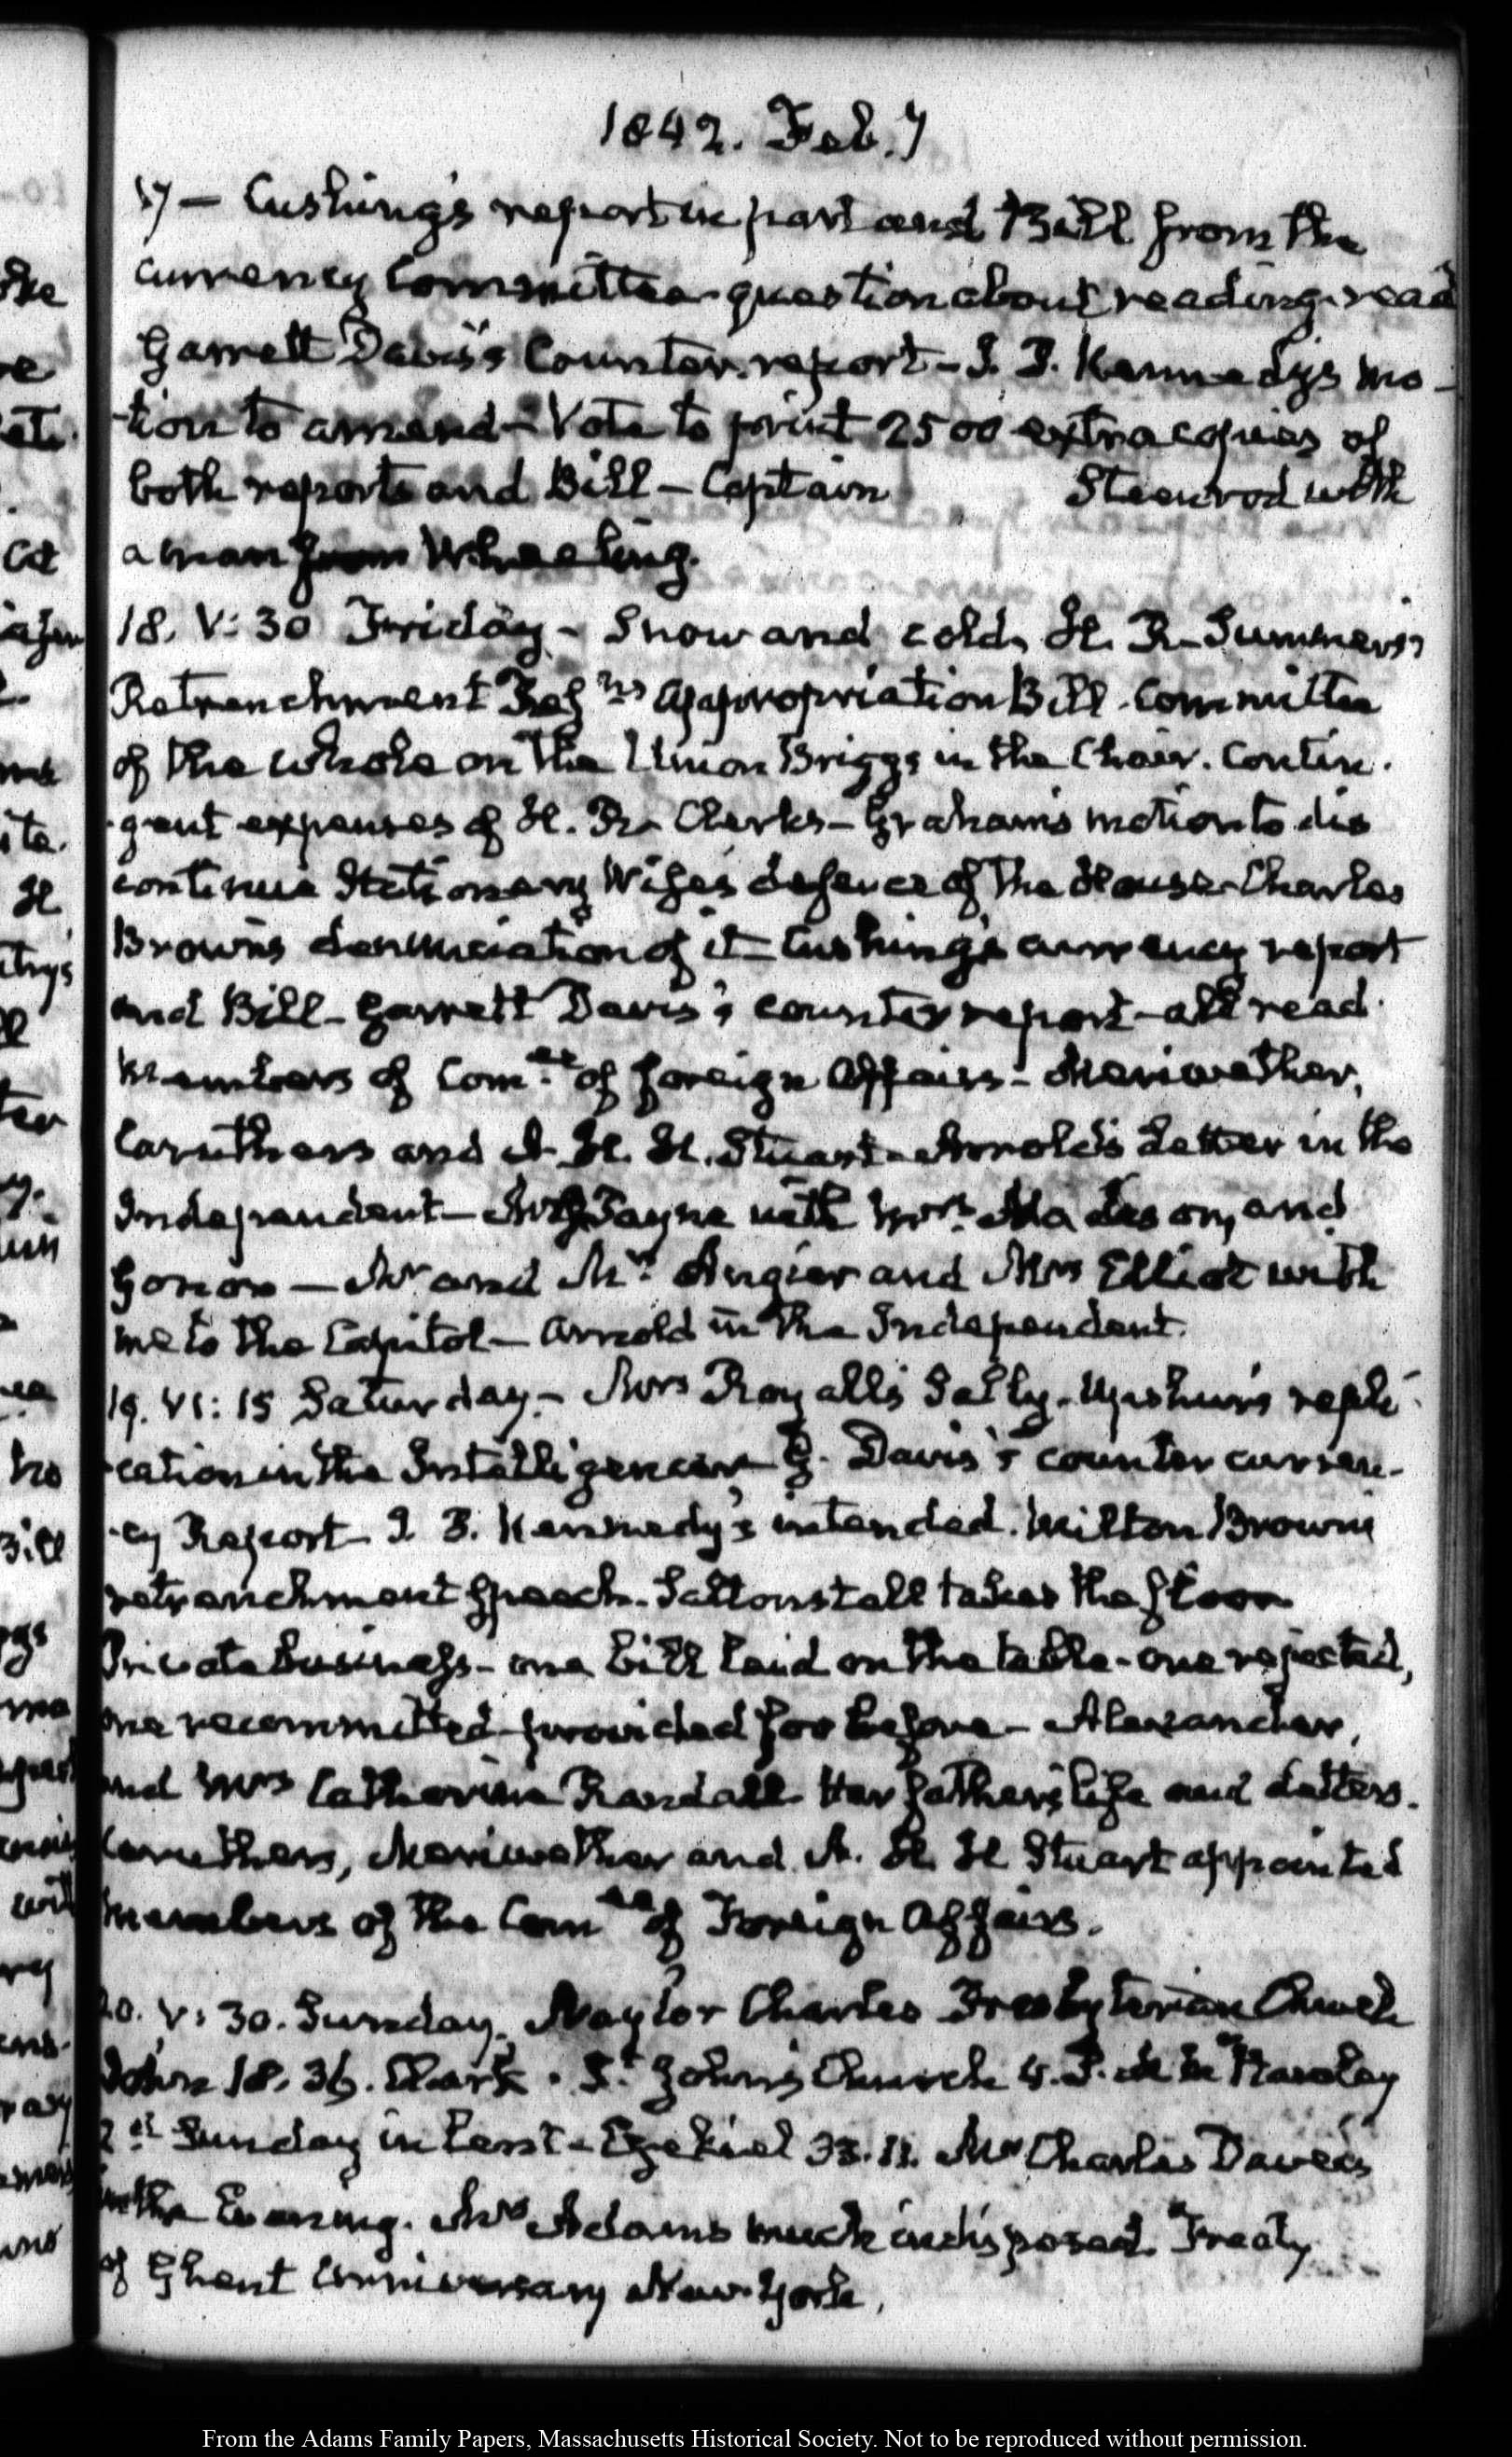 1842. Feb. y
17 — Cushing's report in part and Bill from the
currency Committee question about reading. read
Garrett Davis's Counter. report — I. P. Kennedys mo-
-tion to amend — Vote to print 2500 extra copies of
both reports and Bill — Captain Steenrod with
a man from Wheeling.
18. V: 30 Friday — Snow and cold. H. R. Summers's
Retrenchment Res.ns Appropriation Bill. Committee
of the whole on the Union Briggs in the Chair. Contin.
-gent expenses of H. R. Clerks — Graham's motion to dis
continue Stationary Wise's defence of the House. Charles
Brown's denunciation of it — Cushing's currency report
and Bill — Garrett Davis's counter report — all read
Members of Com.ee of foreign Affairs — Meriwether,
Caruthers and A. H. H. Stuart — Arnold's Letter in the
Independent — Payne with Mrs. Madison, and
— Mr and Mrs. Angier and Mrs Elliot with
me to the Capitol — Arnold in the Independent.
19. VI: 15 Saturday — Mrs Royall's Sally. Upshur's repli-
-cation in the Intelligencer G. Davis's counter curren-
-cy Report — I. P. Kennedy's intended. Milton Brown's
retrenchment Speech. Saltonstall takes the floor
Private business — one bill laid on the table — one rejected,
one recommitted provided for before — Alexander,
and Mrs Catherine Randall. Her father's life and Letters.
Caruthers, Meriwether and A. H. H Stuart appointed
members of the Com.ee of Foreign Affairs.
20. V: 30. Sunday. Naylor Charles Presbyterian Church
John 18. 36. Clark. St. John's Church 4. P. M. Hawley
2d. Sunday in Lent — Ezekiel 33. 11. Mr Charles Daveis
in the Evening. Mrs Adams much indisposed. Treaty
of Ghent Anniversary New-York.
From the Adams Family Papers, Massachusetts Historical Society. Not to be reproduced without permission.